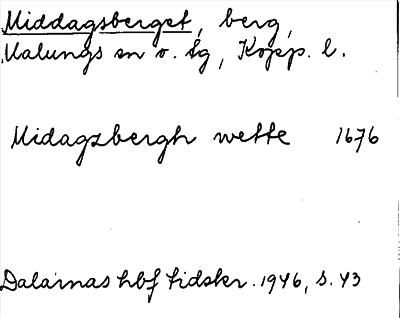 Middagsberget, berg,
Malungs sn o. Sg, Kopp. l.
Midagzbergh wette 1676
Dalarnas hbf tidskr. 1946, s. 43